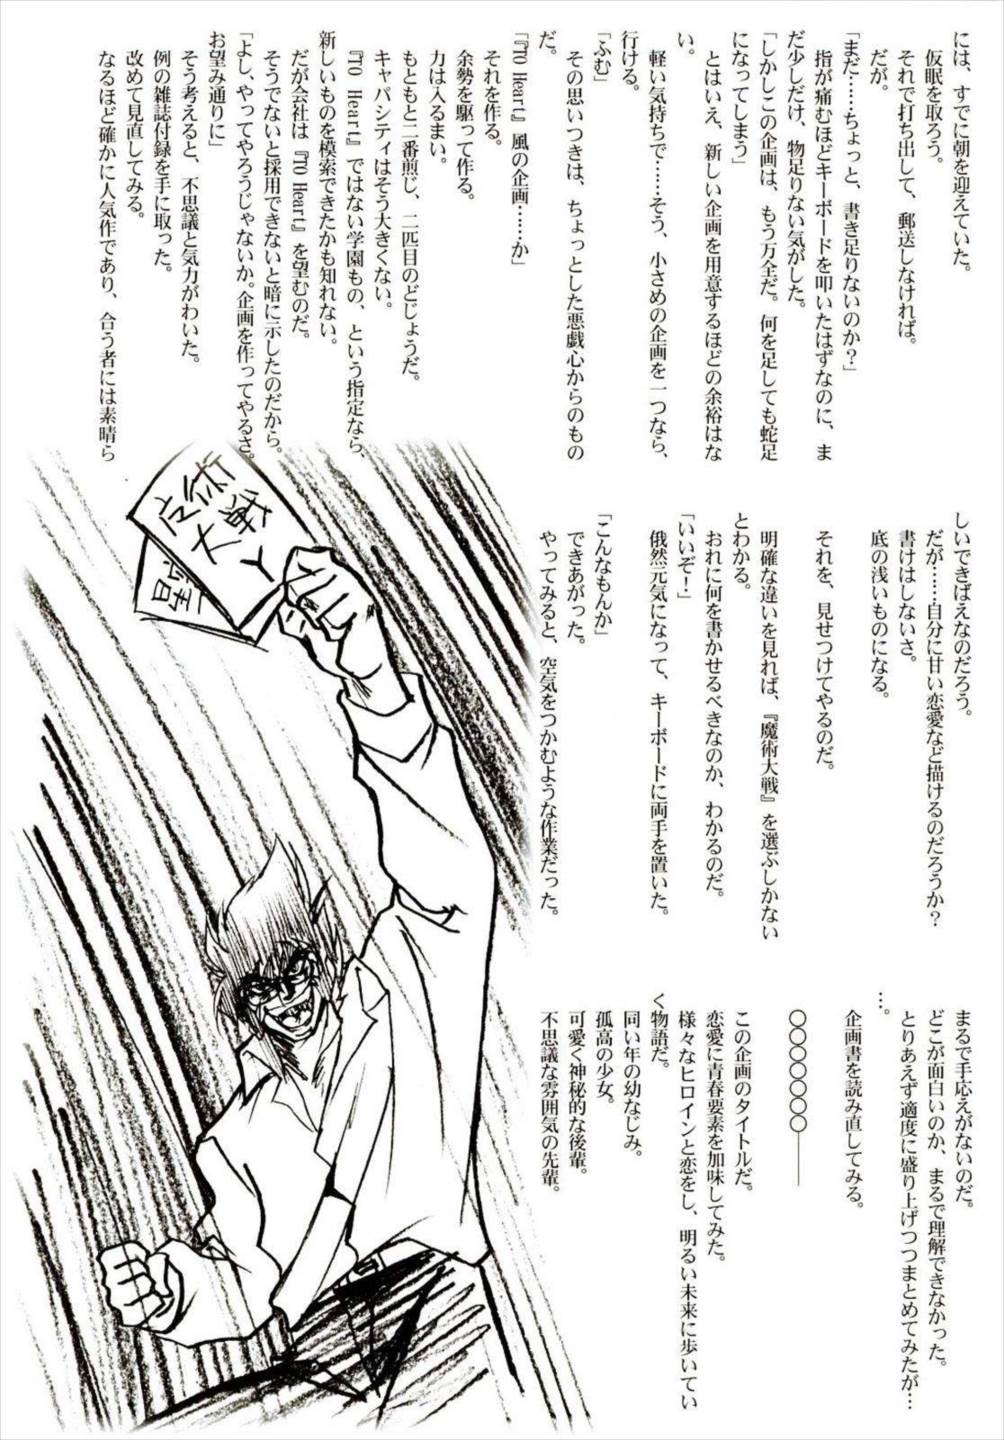 には、すでに朝を迎えていた。
仮眠を取ろう。
それで打ち出して、郵送しなければ。
だが。
「まだ……ちょっと、書き足りないのか？」
指が痛むほどキーボードを叩いたはずなのに、ま
だ少しだけ、物足りない気がした。
「しかしこの企画は、もう万全だ。何を足しても蛇足
になってしまう」
とはいえ、新しい企画を用意するほどの余裕はな
い。
軽い気持ちで……そう、小さめの企画を一つなら、
行ける。
「ふむ」
その思いつきは、ちょっとした悪戯心からのもの
だ。
『TO Heart』風の企画……か」
それを作る。
余勢を駆って作る。
力は入るまい。
もともと二番煎じ、二匹目のどじょうだ。
キャパシティはそう大きくない。
『TO Heart』ではない学園もの、という指定なら、
新しいものを模索できたかも知れない。
だが会社は『TO Heart』を望むのだ。
そうでないと採用できないと暗に示したのだから。
「よし、やってやろうじゃないか。企画を作ってやるさ。
お望み通りに」
そう考えると、不思議と気力がわいた。
例の雑誌付録を手に取った。
改めて見直してみる。
なるほど確かに人気作であり、合う者には素晴ら
しいできばえなのだろう。
だが……自分に甘い恋愛など描けるのだろうか？
書けはしないさ。
底の浅いものになる。
それを、見せつけてやるのだ。
明確な違いを見れば、『魔術大戦』を選ぶしかない
とわかる。
おれに何を書かせるべきなのか、わかるのだ。
「いいぞ！」
俄然元気になって、キーボードに両手を置いた。
「こんなもんか」
できあがった。
やってみると、空気をつかむような作業だった。
まるで手応えがないのだ。
どこが面白いのか、まるで理解できなかった。
とりあえず適度に盛り上げつつまとめてみたが…
…。
企画書を読み直してみる。
○○○○○○○――――
この企画のタイトルだ。
恋愛に青春要素を加味してみた。
様々なヒロインと恋をし、明るい未来に歩いてい
く物語だ。
同い年の幼なじみ。
孤高の少女。
可愛く神秘的な後輩。
不思議な雰囲気の先輩。